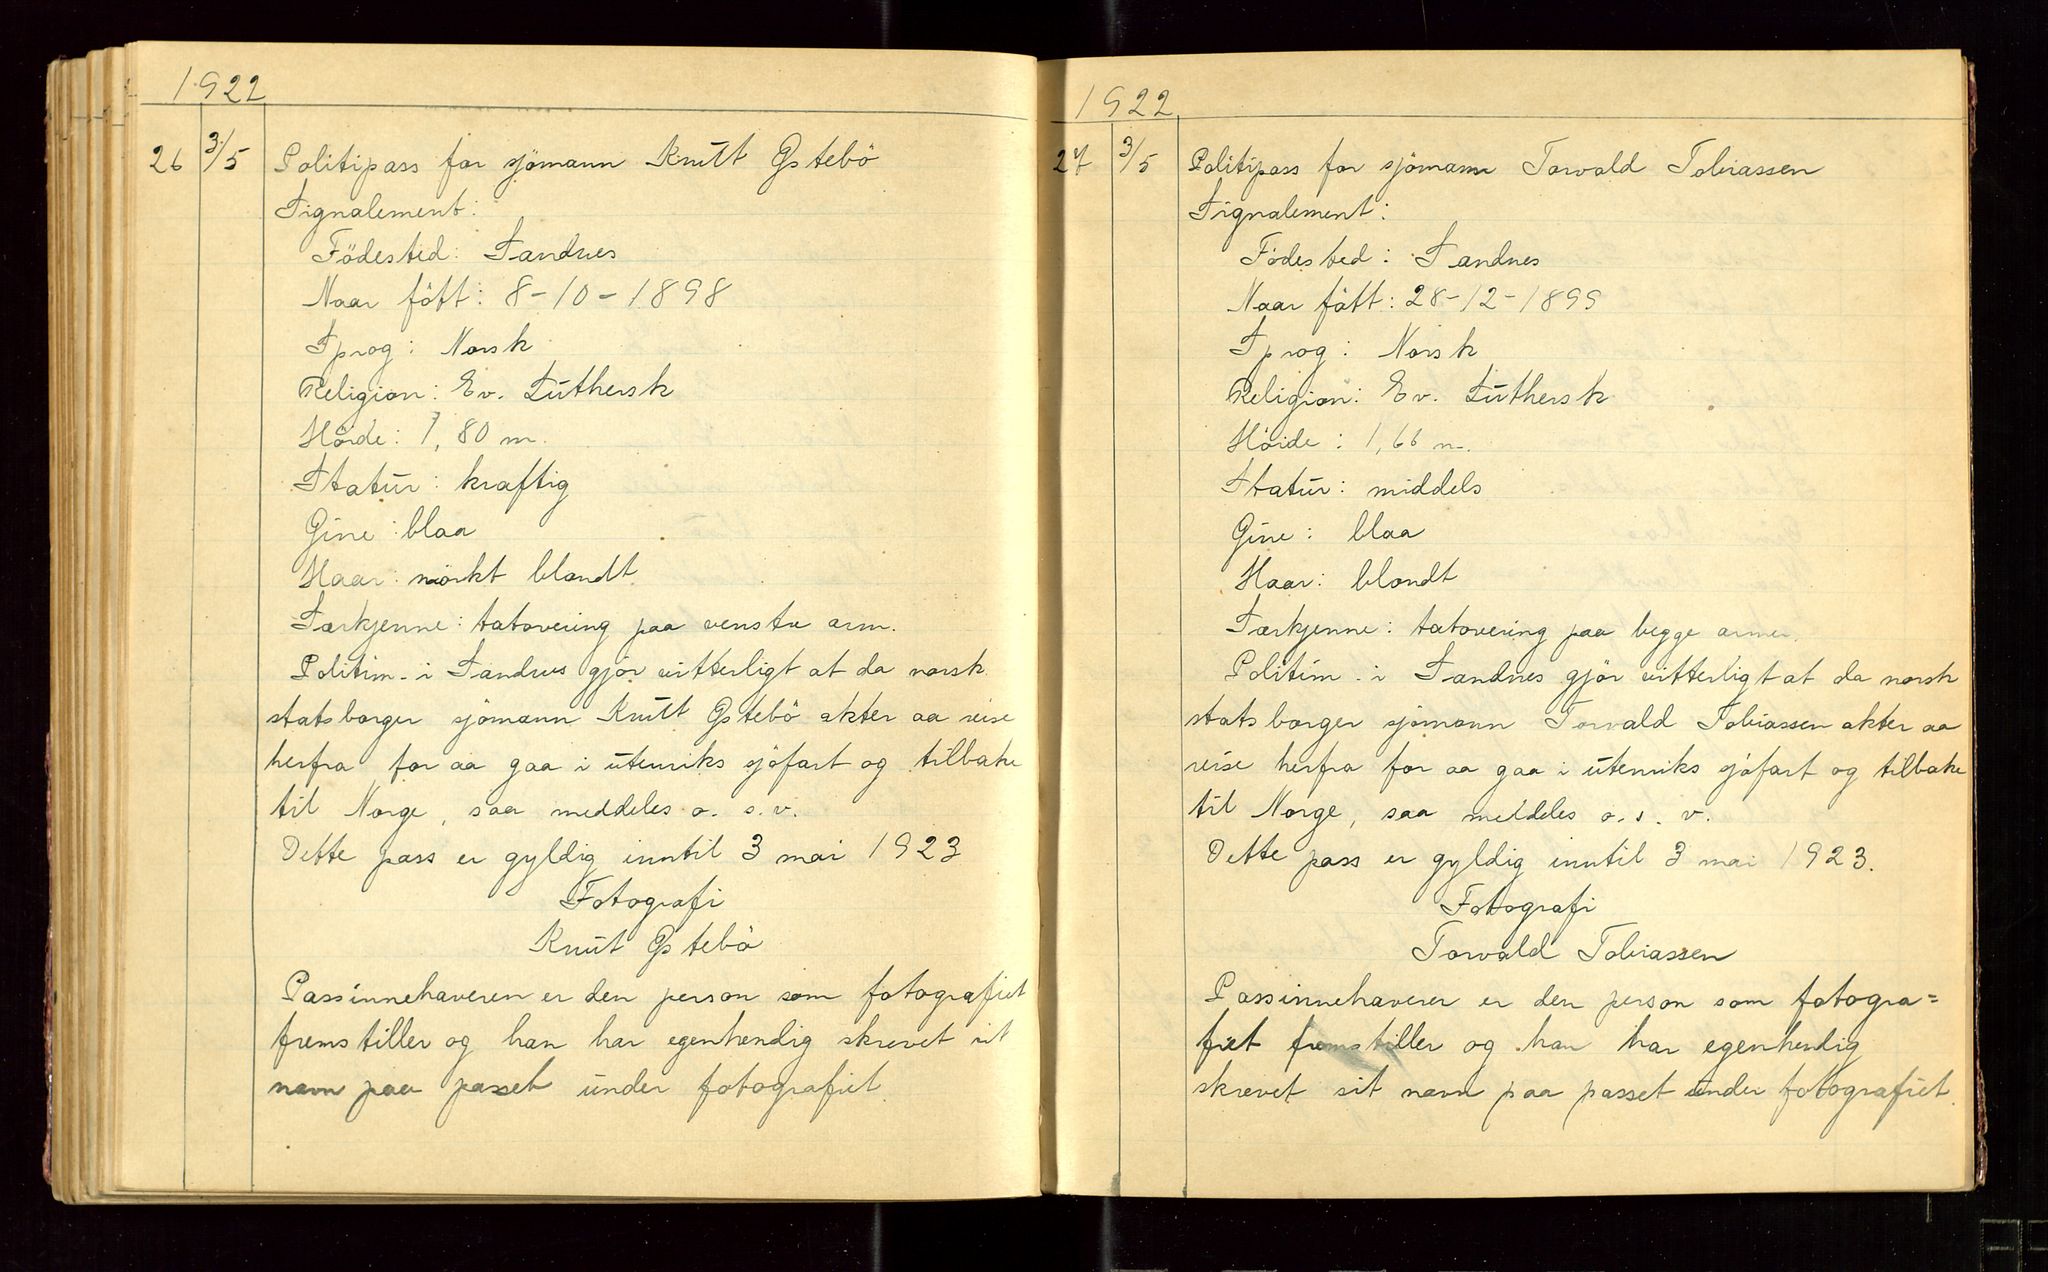 1922
26 3/5 Politipass for sjömann Knut Østebö
Signalement:
Födested: Sandnes
Naar fött: 8-10-1898
Sprog: Norsk
Religion: Ev. Luthersk
Höide: 1,80 m.
Statur: kraftig
Öine: blaa
Haar: mörkt blondt
Særkjenne: tatovering paa venstre arm.
Politim. i Sandnes gjör vitterligt at da norsk
statsborger sjömann Knut Østebö akter aa reise
herfra for aa gaa i utenriks sjöfart og tilbake
til Norge, saa meddeles o. s. v.
Dette pass er gyldig inntil 3 mai 1923
Fotografi
Knut Østebö
Passinnehaveren er den person som fotografiet
fremstiller og han har egenhendig skrevet sit
navn paa passet under fotografiet.
1922
27 3/5 Politipass for sjömann Torvald Tobiassen
Signalement:
Födested: Sandnes
Naar fött: 28-12-1899
Sprog: Norsk
Religion: Ev. Luthersk
Höide: 1,66 m.
Statur: middels
Öine: blaa
Haar: blondt
Særkjenne: tatovering paa begge armer.
Politim. i Sandnes gjör vitterligt at da norsk
statsborger sjömann Torvald Tobiassen akter aa
reise herfra for aa gaa i utenriks sjöfart og tilbake
til Norge, saa meddeles o. s. v.
Dette pass er gyldig inntil 3 mai 1923.
Fotografi
Torvald Tobiassen
Passinnehaverer er den person som fotogra=
fiet fremstiller og han har egenhendig
skrevet sit navn paa passet under fotografiet.